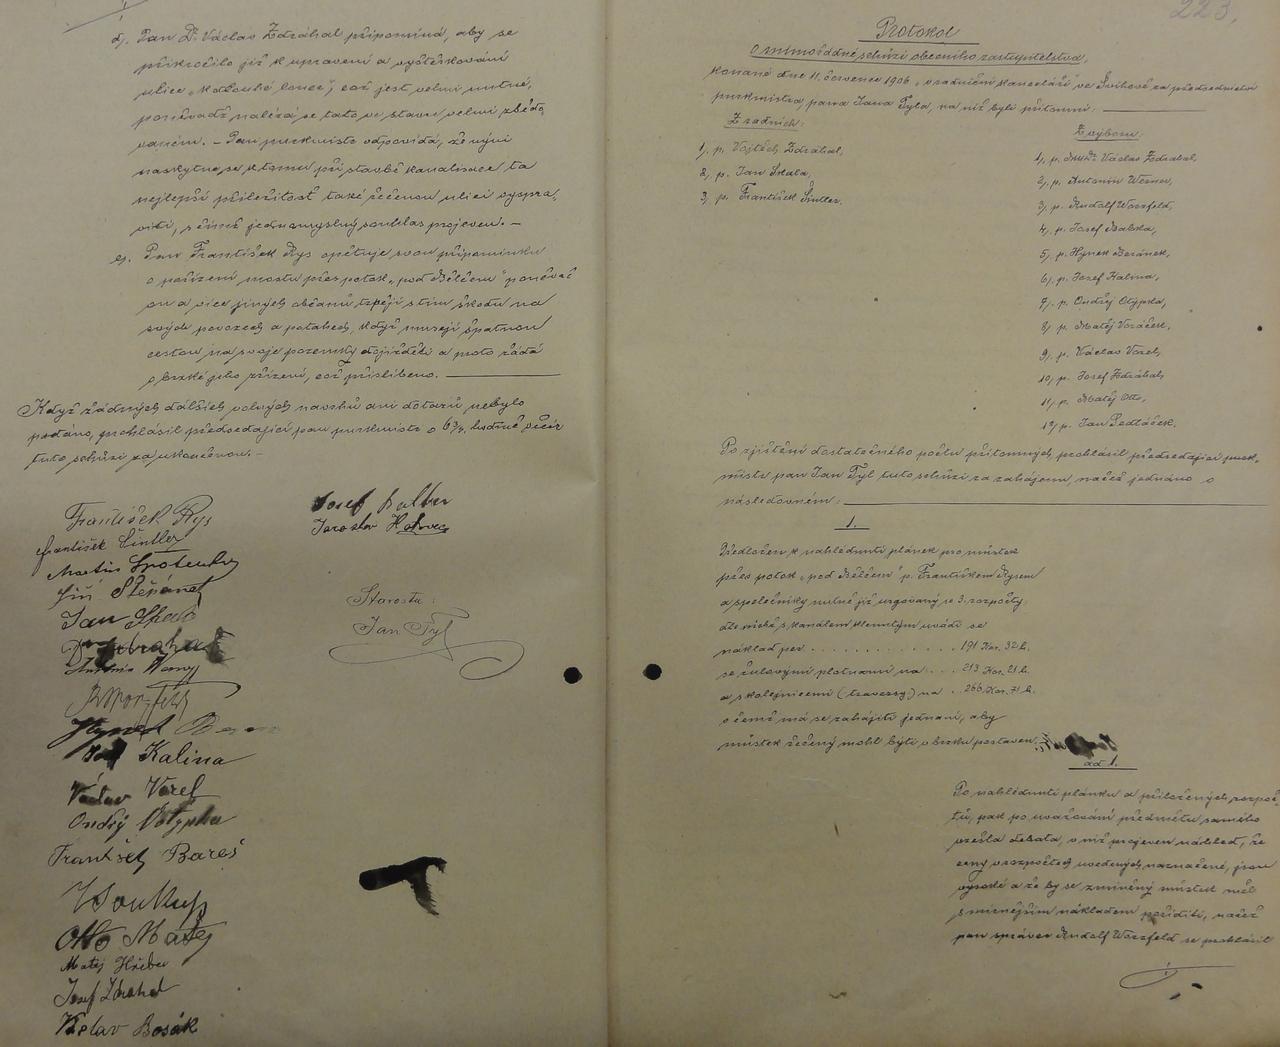 d). Pan Dr. Václav Zdráhal připomíná, aby se
přikročilo již k upravení a vyštěrkování
ulice „Na Dlouhé louce“, což jest velmi nutné,
poněvadž nalézá se tato ve stavu velmi zbědo,
vaném. – Pan purkmistr odpovídá, že nyní
naskytne se k tomu při stavbě kanalisace ta
nejlepší příležitost také řečenou ulici vyspra,
viti, s čímž jednomyslný souhlas projeven. –
e). Pan František Rys opětuje svou připomínku
o pořízení mostu přes potok „pod Bělčem“ poněvač
on a více jiných občanů trpějí s tím škodu na
svých povozech a potazích, když musejí špatnou
cestou na svoje pozemky dojížděti a proto žádá
o brzké jeho zřízení, což přislíbeno.
Když žádných dalších volných návrhů ani dotazů nebylo
podáno, prohlásil předsedající pan purkmistr o 6¾ hodině večer
tuto schůzi za ukončenou. –
František Rys
František Šintler
Jiří Štěpánek
Jan Skala
Kalina
Václav Vorel
Ondřej Votypka
František Bareš
Otto Matěj
Matěj
Josef Zdráhal
Václav Bosák
Josef
Jaroslav
Starosta:
Jan Tyl
223.
Protokol
o mimořádné schůzi obecního zastupitelstva,
konané dne 11. července 1906 v radniční kanceláři ve Švihově za předsednictví
purkmistra pana Jana Tyla, na níž byli přítomni:
Z radních:
1). p. Vojtěch Zdráhal,
2. p. Jan Skala,
3. p. František Šintler.
Z výboru:
1). p. MUDr. Václav Zdráhal,
2). p. Antonín Werner,
3). p. Rudolf Worzfeld,
4. p. Josef
5). p. Hynek Beránek,
6). p. Josef Kalina,
7). p. Ondřej Otypka,
8). p. Matěj Vozáček,
9). p. Václav Vorel,
10). p. Josef Zdráhal,
11). p. Matěj Otto,
12). p. Jan Sedláček.
Po zjištění dostatečného počtu přítomných, prohlásil předsedající purk,
mistr pan Jan Tyl tuto schůzi za zahájenu, načež jednáno o
následovném:
1.
Předložen k nahlédnutí plánek pro můstek
přes potok „pod Bělčem“ p. Františkem Rysem
a společníky nutně již urgovaný se 3. rozpočty,
dle nichž s kanálem klenutým uvádí se
náklad per . . . . . . . . . . . 191 Kor. 32 h.
se žulovými plotnami na . . . 213 Kor. 21 h.
a s kolejnicemi (traversy) na . 266 Kor. 71 h.
o čemž má se zahájiti jednání, aby
můstek řečený mohl býti v brzku postaven.
ad 1.
Po nahlédnutí plánku a přiložených rozpoč,
tů, pak po uvažování předmětu samého
vzešla debata, v níž projeven náhled, že
ceny v rozpočtech uvedených naznačené, jsou
vysoké a že by se zmíněný můstek měl
s mírnějším nákladem poříditi, načež
pan správce Rudolf Worzfeld se prohlásil